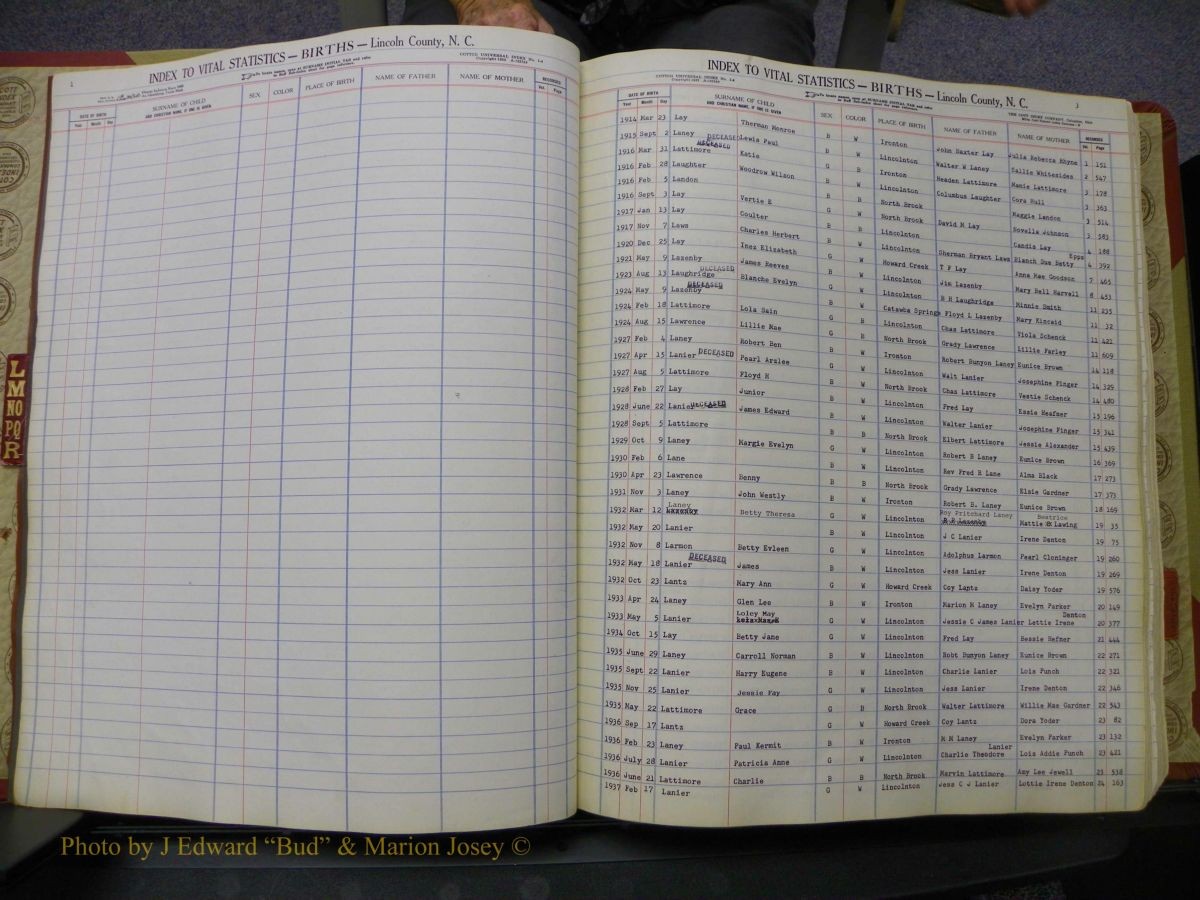 INDEX TO VITAL STATISTICS — BIRTHS — Lincoln County, N. C.
DATE OF BIRTH
Year Month Day
SURNAME OF CHILD
AND CHRISTIAN NAME, IF ONE IS GIVEN
SEX COLOR PLACE OF BIRTH NAME OF FATHER NAME OF MOTHER RECORDED
Vol. Page
L
M
NO
PQ
R
INDEX TO VITAL STATISTICS — BIRTHS — Lincoln County, N. C. 3
DATE OF BIRTH
Year Month Day
SURNAME OF CHILD
AND CHRISTIAN NAME, IF ONE IS GIVEN
SEX COLOR PLACE OF BIRTH NAME OF FATHER NAME OF MOTHER RECORDED
Vol. Page
1914 Mar 23 Lay Therman Monroe B W Ironton John Baxter Lay Julia Rebecca Rhyne 1 151
1915 Sept 2 Laney DECEASED Lewis Paul B W Lincolnton Walter W Laney Sallie Whitesides 2 547
1916 Mar 31 Lattimore DECEASED Katie G B Ironton Headen Lattimore Mamie Lattimore 3 178
1916 Feb 28 Laughter Woodrow Wilson B W Lincolnton Columbus Laughter Cora Hull 3 363
1916 Feb 5 Landon B B North Brook Maggie Landon 3 514
1916 Sept 3 Lay Vertie E G W North Brook David M Lay Novella Johnson 3 583
1917 Jan 13 Lay Coulter B B Lincolnton Candis Lay 4 188
1917 Nov 7 Laws Charles Herbert B W Lincolnton Sherman Bryant Laws Blanch Sue Betty Epps 4 392
1920 Dec 25 Lay Inez Elizabeth G W Howard Creek T F Lay Anna Mae Goodson 7 465
1921 May 9 Lazenby James Reeves B W Lincolnton Jim Lazenby Mary Bell Harvell 8 453
1923 Aug 13 Laughridge DECEASED Blanche Evelyn G W Lincolnton B H Laughridge Minnie Smith 11 235
1924 May 9 Lazenby DECEASED B W Catawba Springs Floyd L Lazenby Mary Kincaid 11 32
1924 Feb 18 Lattimore Lola Sain G B Lincolnton Chas Lattimore Viola Schenck 11 421
1924 Aug 15 Lawrence Lillie Mae G B North Brook Grady Lawrence Lillie Farley 11 609
1927 Feb 4 Laney Robert Ben B W Ironton Robert Bunyon Laney Eunice Brown 14 118
1927 Apr 15 Lanier DECEASED Pearl Arzlee G W Lincolnton Walt Lanier Josephine Finger 14 329
1927 Aug 5 Lattimore Floyd H B W North Brook Chas Lattimore Vestie Schenck 14 480
1928 Feb 27 Lay Junior B W Lincolnton Fred Lay Essie Heafner 15 196
1928 June 22 Lanier DECEASED James Edward B W Lincolnton Walter Lanier Josephine Finger 15 341
1928 Sept 5 Lattimore B B North Brook Elbert Lattimore Jessie Alexander 15 439
1929 Oct 9 Laney Margie Evelyn G W Lincolnton Robert B Laney Eunice Brown 16 369
1930 Feb 6 Lane B W Lincolnton Rev Fred R Lane Alma Black 17 273
1930 Apr 23 Lawrence Benny B B North Brook Grady Lawrence Elsie Gardner 17 373
1931 Nov 3 Laney John Westly B W Ironton Robert B. Laney Eunice Brown 18 169
1932 Mar 12 Laney Betty Theresa G W Lincolnton Roy Pritchard Laney Mattie Beatrice Lawing 19 35
1932 May 20 Lanier B W Lincolnton J C Lanier Irene Denton 19 75
1932 Nov 8 Larmon Betty Evleen G W Lincolnton Adolphus Larmon Pearl Cloninger 19 260
1932 May 18 Lanier DECEASED James B W Lincolnton Jess Lanier Irene Denton 19 269
1932 Oct 23 Lantz Mary Ann G W Howard Creek Coy Lantz Daisy Yoder 19 576
1933 Apr 24 Laney Glen Lee B W Ironton Marion M Laney Evelyn Parker 20 149
1933 May 5 Lanier Loley May G W Lincolnton Jessie C James Lanier Lottie Irene Denton 20 377
1934 Oct 15 Lay Betty Jane G W Lincolnton Fred Lay Bessie Hefner 21 444
1935 June 29 Laney Carroll Norman B W Lincolnton Robt Bunyon Laney Eunice Brown 22 271
1935 Sept 22 Lanier Harry Eugene B W Lincolnton Charlie Lanier Lois Punch 22 321
1935 Nov 25 Lanier Jessie Fay G W Lincolnton Jess Lanier Irene Denton 22 346
1935 May 22 Lattimore Grace G B North Brook Walter Lattimore Willie Mae Gardner 22 543
1936 Sep 17 Lantz G W Howard Creek Coy Lantz Dora Yoder 23 82
1936 Feb 23 Laney Paul Kermit B W Ironton M M Laney Evelyn Parker 23 132
1936 July 28 Lanier Patricia Anne G W Lincolnton Charlie Theodore Lanier Lois Addie Punch 23 421
1936 June 21 Lattimore Charlie B B North Brook Marvin Lattimore Amy Lee Jewell 23 538
1937 Feb 17 Lanier G W Lincolnton Jess C J Lanier Lottie Irene Denton 24 163
Photo by J Edward “Bud” & Marion Josey ©